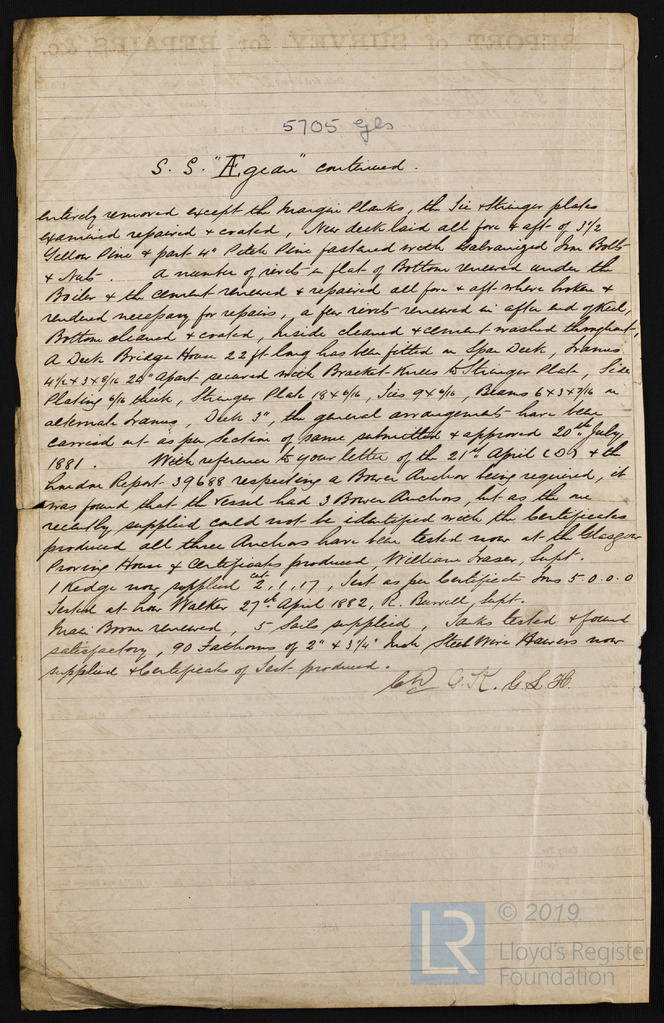 REPORT of SURVEY for REPAIRS, &c.
5705 Gls
S. S. "Ægean" continued.
entirely removed except the Margin Planks, the Tie & Stringer plates
examined repaired & coated, New deck laid all fore & aft of 3 1/2
Yellow Pine & part 4" Pitch Pine fastened with Galvanized Iron Bolts
& Nuts. A number of rivets in flat of Bottom renewed under the
Boiler & the cement renewed & repaired all fore & aft where broken &
rendered necessary for repairs, a few rivets renewed in after end of Keel,
Bottom cleaned & coated, inside cleaned & cement washed throughout,
A Deck Bridge House 22 ft long has been fitted on Spar Deck, frames
4 1/2 x 3 x 6/16 24" apart secured with Bracket Knees to Stringer Plate, Side
Plating 6/16 thick, Stringer Plate 18 x 6/16, Ties 9 x 6/16, Beams 6 x 3 x 7/16 on
alternate frames, Deck 3", the general arrangements have been
carried out as per section of same submitted & approved 20th July
1881. With reference to your letter of the 21st April & the
London Report 39688 respecting a Bower Anchor being required, it
was found that the vessel had 3 Bower Anchors, but as the one
recently supplied could not be identified with the Certificates
produced all three Anchors have been tested now at the Glasgow
Proving House & Certificates produced, William Fraser, Supt.
1 Kedge now supplied cwt 2, 1, 17, Test as per Certificate Tons 5.0.0.0
Tested at Low Walker 27th April 1882, R. Burrell, Supt.
Main Boom renewed, 5 Sails supplied, Tanks tested & found
satisfactory, 90 Fathoms of 2" & 3 1/4" Inch Steel Wire Hawsers now
supplied & Certificates of Test produced.
G. K. G. L. H.
© 2019
LR
Lloyd's Register
Foundation